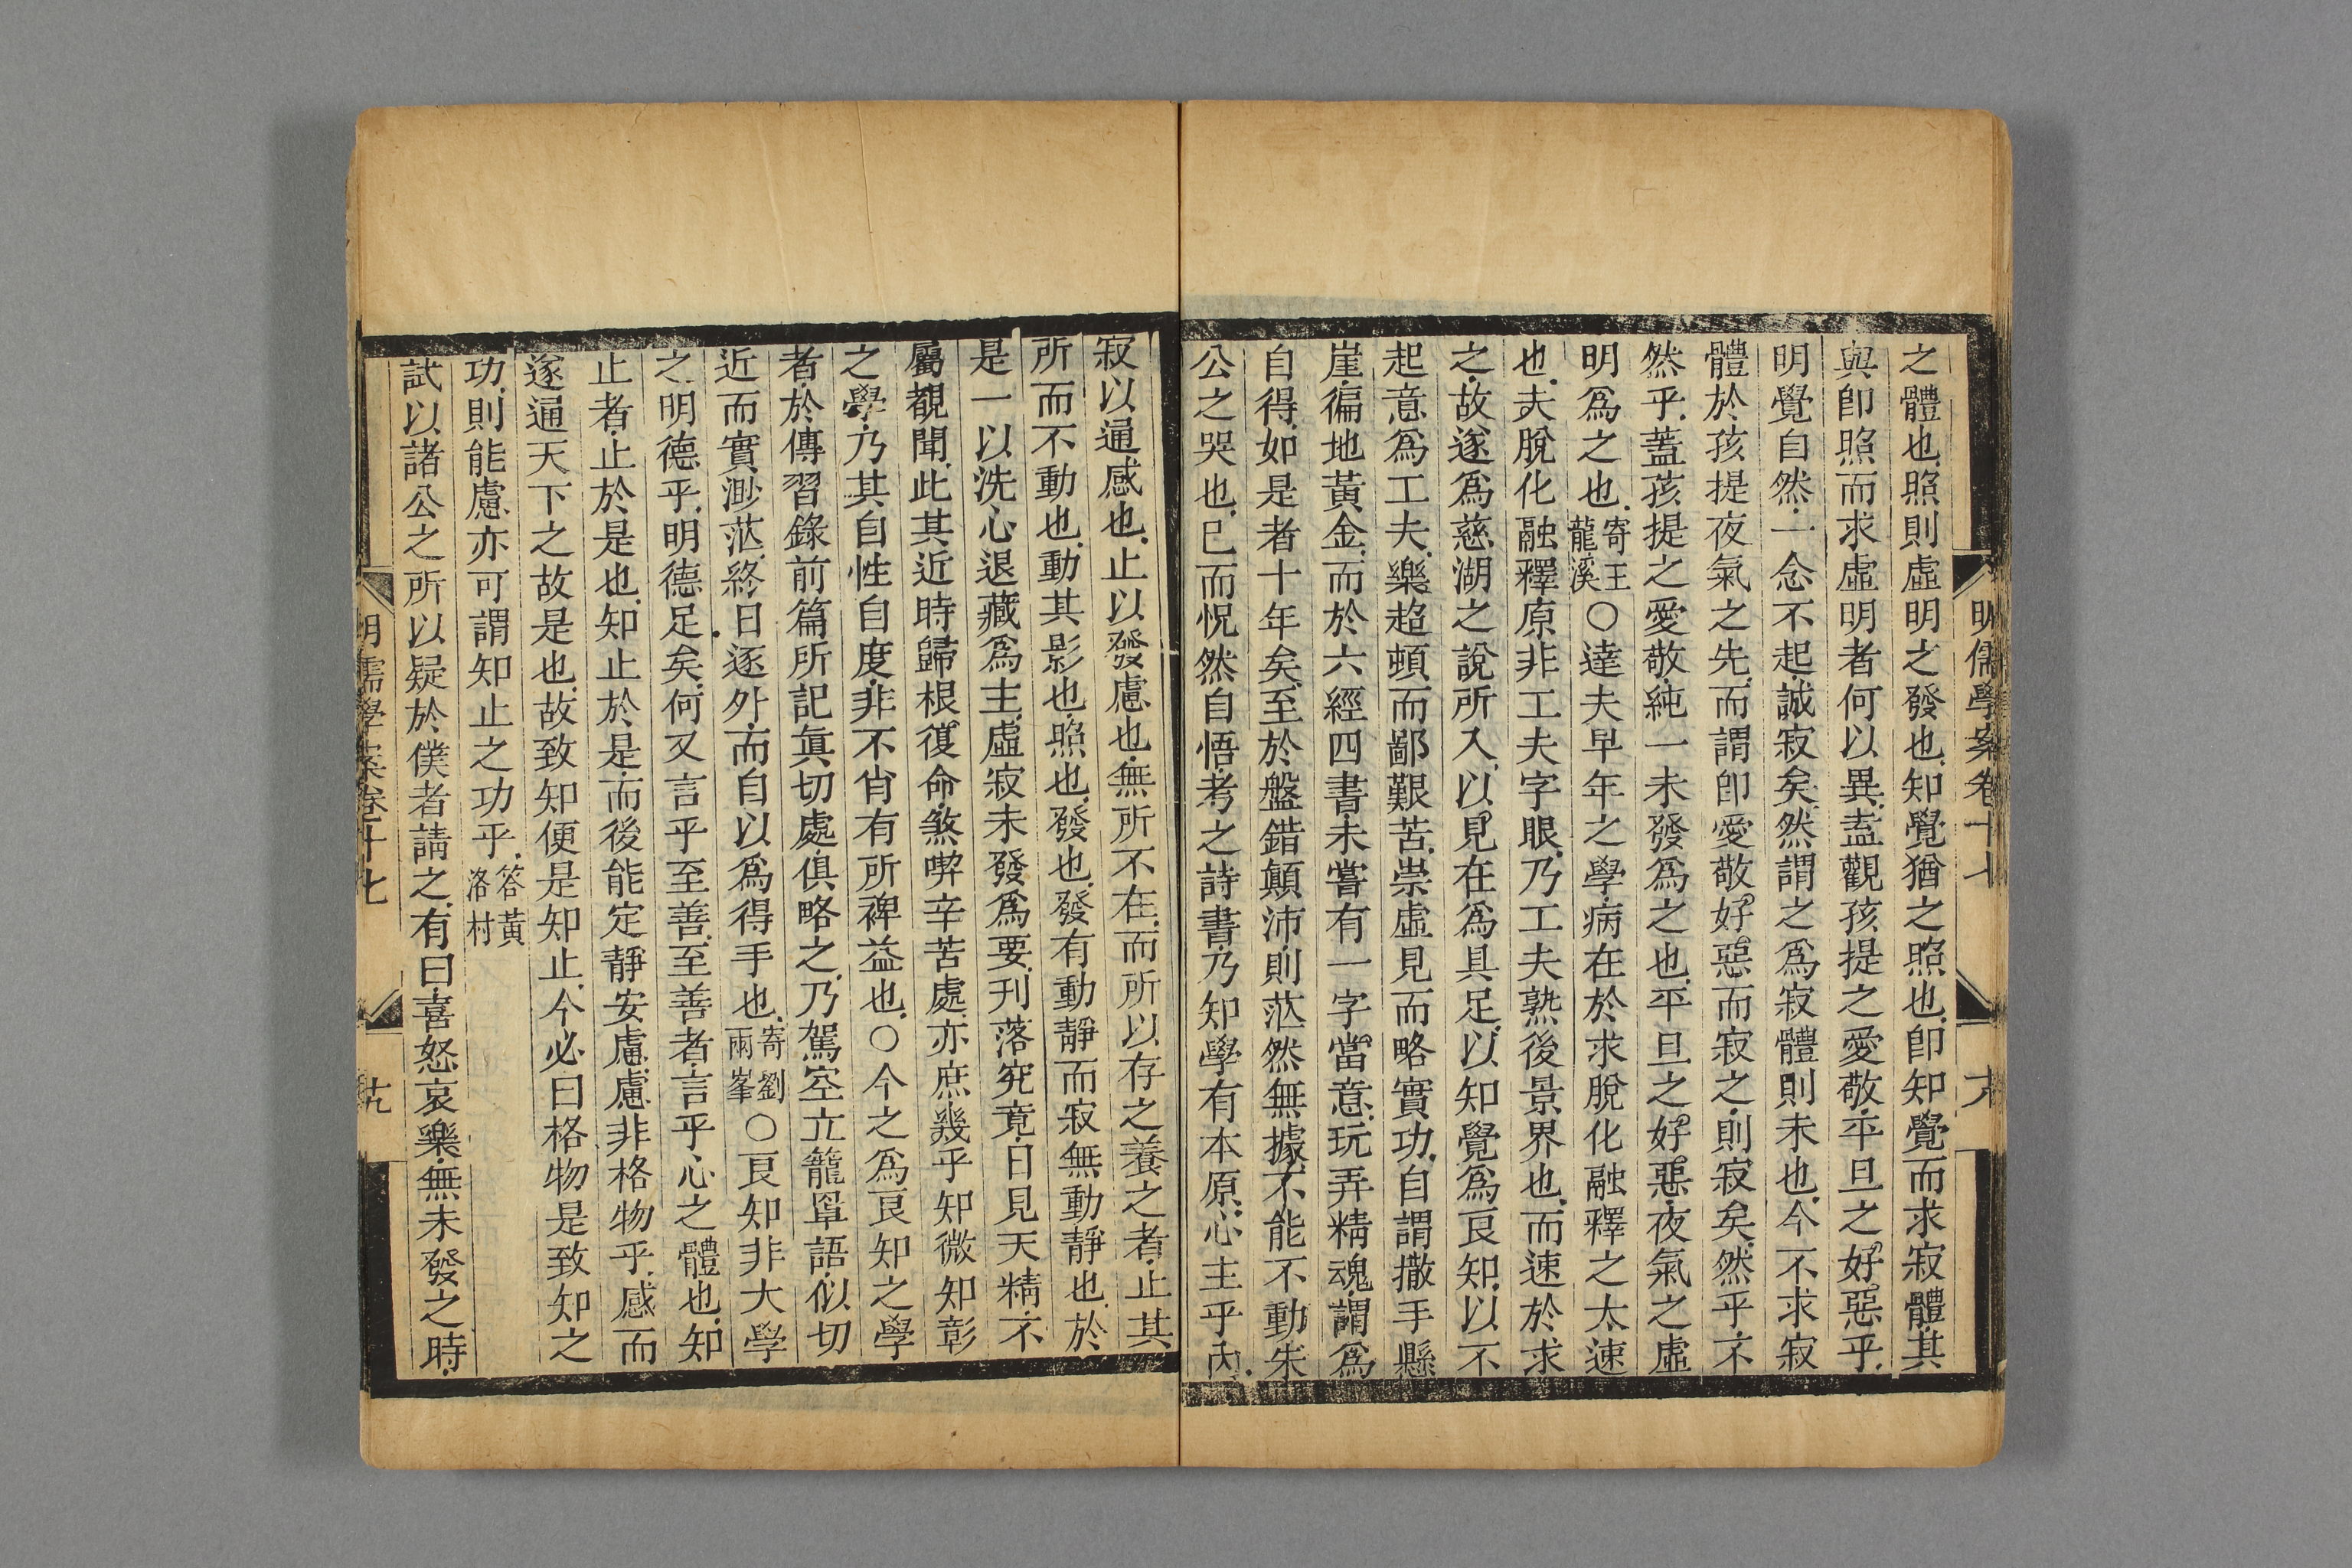 明儒學案卷十七
之體也照則虛明之發也知覺猶之照也卽知覺而求寂體其
與卽照而求虛明者何以異盍觀孩提之愛敬平旦之好惡乎
明覺自然一念不起誠寂矣然謂之爲寂體則未也今不求寂
體於孩提夜氣之先而謂卽愛敬好惡而寂之則寂矣然乎不
然乎蓋孩提之愛敬純一未發爲之也平旦之好惡夜氣之虛
明爲之也寄王龍溪○達夫早年之學病在於求脫化融釋之太速
也夫脫化融釋原非工夫字眼乃工夫熟後景界也而速於求
之故遂爲慈湖之說所入以見在爲具足以知覺爲良知以不
起意爲工夫樂超頓而鄙艱苦崇虛見而略實功自謂撒手懸
崖徧地黃金而於六經四書未嘗有一字當意玩弄精魂謂爲
自得如是者十年矣至於盤錯顛沛則茫然無據不能不動朱
公之哭也已而怳然自悟考之詩書乃知學有本原心主乎內
寂以通感也止以發慮也無所不在而所以存之養之者止其
所而不動也動其影也照也發也發有動靜而寂無動靜也於
是一以洗心退藏爲主虛寂未發爲要刊落究竟日見天精不
屬覩聞此其近時歸根復命煞喫辛苦處亦庶幾乎知微知彰
之學乃其自性自度非不肖有所裨益也○今之爲良知之學
者於傳習錄前篇所記眞切處俱略之乃駕空立籠罩語似切
近而實渺茫終日逐外而自以爲得手也寄劉兩峯○良知非大學
之明德乎明德足矣何又言乎至善至善者言乎心之體也知
止者止於是也知止於是而後能定靜安慮慮非格物乎感而
遂通天下之故是也故致知便是知止今必曰格物是致知之
功則能慮亦可謂知止之功乎答黃洛村
試以諸公之所以疑於僕者請之有曰喜怒哀樂無未發之時
明儒學案卷十七